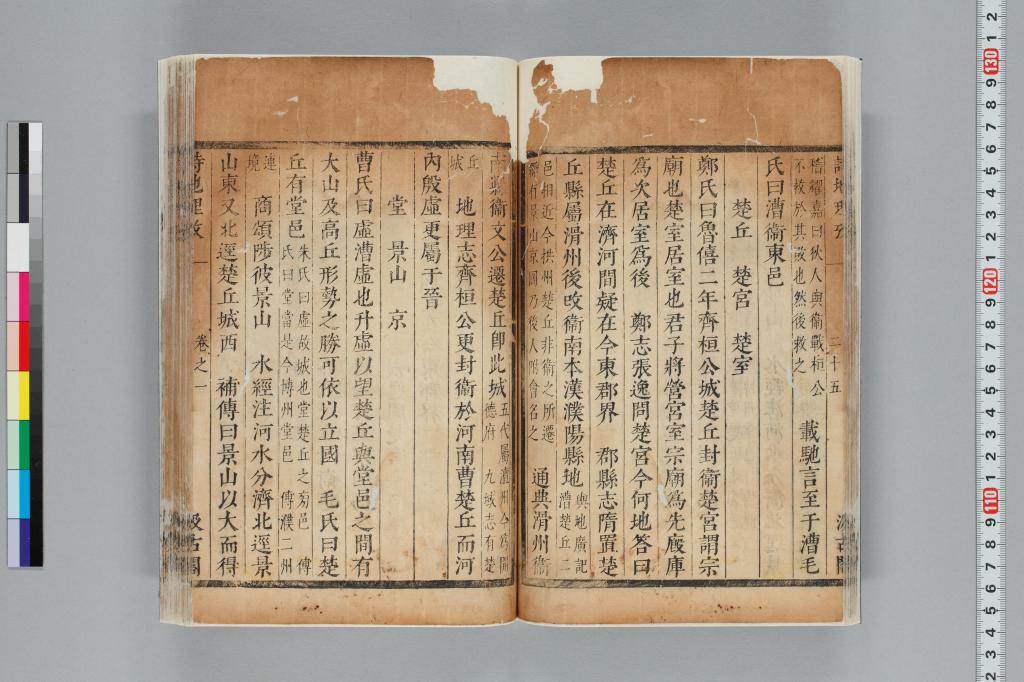 詩地理攷 二十五 汲古閣
稽耀嘉曰狄人與衛戰桓公
不救於其敗也然後救之
載馳言至于漕毛
氏曰漕衛東邑
楚丘 楚宮 楚室
鄭氏曰魯僖二年齊桓公城楚丘封衛楚宮謂宗
廟也楚室居室也君子將營宮室宗廟爲先廐庫
爲次居室爲後 鄭志張逸問楚宮今何地答曰
楚丘在濟河間疑在今東郡界 郡縣志隋置楚
丘縣屬滑州後攺衛南本漢濮陽縣地
輿地廣記
漕楚丘二
邑相近今拱州楚丘非衛之所遷
縣有景山京岡乃後人附會名之
通典滑州衛
南縣衛文公遷楚丘卽此城
五代屬澶州今爲開
德府 九域志有楚
丘
城
地理志齊桓公更封衛於河南曹楚丘而河
內殷虛更屬于晉
堂 景山 京
曹氏曰虛漕虛也升虛以望楚丘與堂邑之間有
大山及高丘形勢之勝可依以立國 毛氏曰楚
丘有堂邑
朱氏曰虛故城也堂楚丘之旁邑 傅
氏曰堂當是今博州堂邑 傅濮二州
連
境
商頌陟彼景山 水經注河水分濟北逕景
山東又北逕楚丘城西 補傳曰景山以大而得
詩地理攷 卷之一 汲古閣